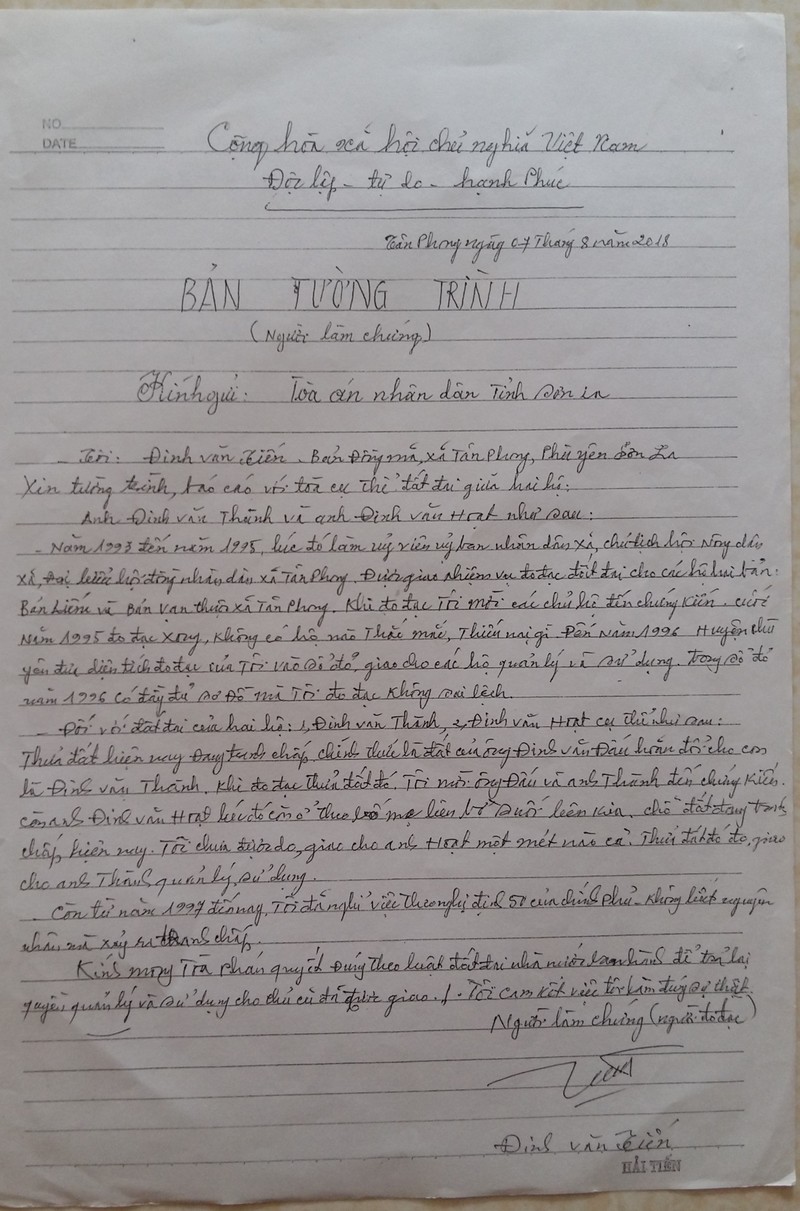 NO
DATE
Cộng hòa xã hội chủ nghĩa Việt Nam
Độc lập - tự do - hạnh Phúc
Tân Phong ngày 07 Tháng 8 năm 2018
BẢN TƯỜNG TRÌNH
(Người làm chứng)
Kính gửi: Tòa án nhân dân Tỉnh Sơn La
- Tôi: Đinh văn Tiến. Bản Đồng mã, xã Tân Phong, Phù yên Sơn La
Xin tường trình, báo cáo với toà cụ thể đất đai giữa hai hộ:
Anh Đinh văn Thành và anh Đinh văn Hoạt như sau:
- Năm 1993 đến năm 1995, lúc đó làm uỷ viên uỷ ban nhân dân xã, chủ tịch hội Nông dân
xã, Đại biểu hội đồng nhân dân xã Tân Phong, Được giao nhiệm vụ đo đạc đất đai cho các hộ hai bản:
Bản Liếm và Bản Vạn thuộc xã Tân Phong. Khi đo đạc Tôi mời các chủ hộ đến chứng kiến. cuối
Năm 1995 đo đạc xong, không có hộ nào Thắc mắc, Thiếu nại gì. Đến Năm 1996 Huyện
yên đưa diện tích đo đạc của Tôi vào sổ đỏ, giao cho các hộ quản lý và sử dụng. trong sổ đỏ
năm 1996 có đầy đủ sơ đồ mà Tôi đo đạc không sai lệch.
- Đối với đất đai của hai hộ: 1, Đinh văn Thành, 2, Đinh văn Hoạt cụ thể như sau:
Thửa đất hiện nay Đang tranh chấp, chính thực là đất của ông Đinh văn Đấu hoán đổi cho con
là Đinh văn Thành. Khi đo đạc thửa đất đó, Tôi mời ông Đấu và anh Thành đến chứng kiến.
còn anh Đinh văn Hoạt lúc đó còn ở theo bố mẹ bên bờ suối bên kia, chỗ đất đang tranh
chấp, hiện nay. Tôi chưa được đo, giao cho anh Hoạt một mét nào cả. Thửa đất đó đo, giao
cho anh Thành quản lý, sử dụng.
- Còn từ năm 1997 đến nay, Tôi đã nghỉ việc theo nghị định 50 của chính Phủ. không biết nguyên
nhân mà xảy ra tranh chấp.
Kính mong Toà Phán quyết Đúng theo luật đất đai nhà nước ban hành để trả lại
quyền quản lý và sử dụng cho chủ cũ đã được giao./. Tôi cam kết việc tôi làm đúng sự thật.
Người làm chứng (người đo đạc)
Đinh văn Tiến
HẢI TIẾN